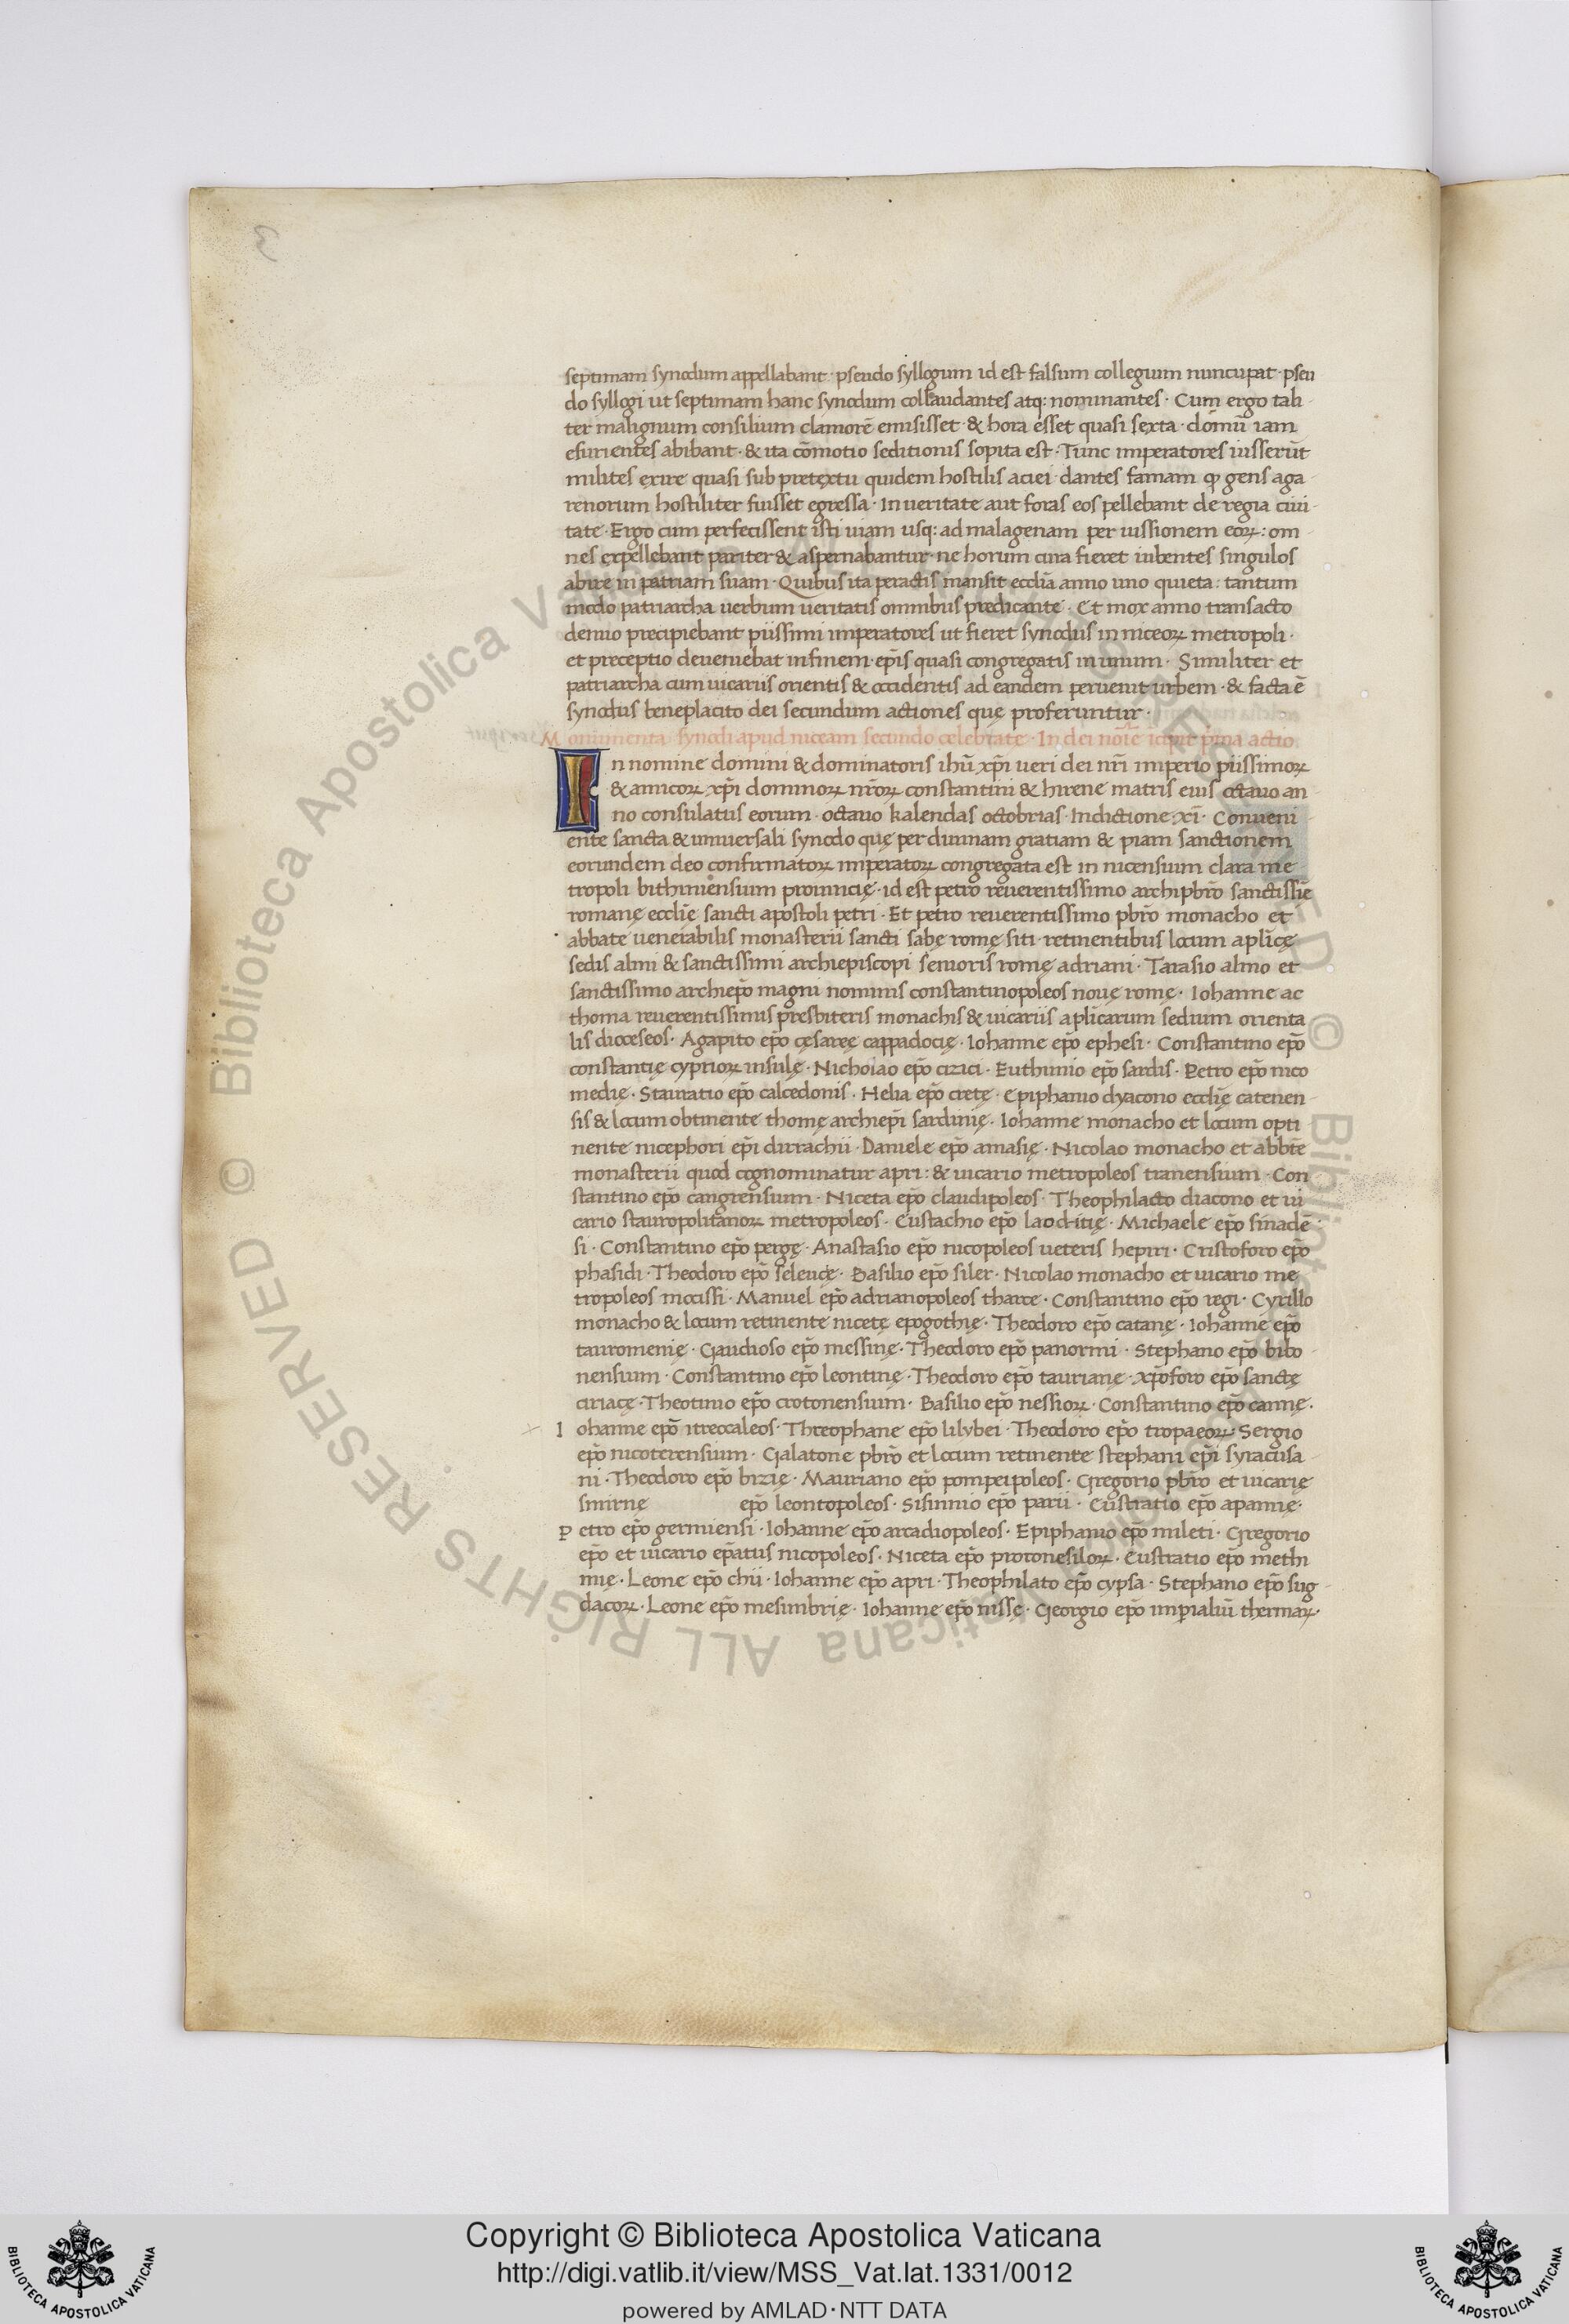 septimam synodum appellabant · pseudo syllogum id est falsum collegium nuncupat · pseu
do syllogi ut septimam hanc synodum collaudantes atq: nominantes · Cum ergo tali
ter malignum consilium clamorē emisisset · & hora esset quasi sexta · domū iam
esurientes abibant · & ita cōmotio seditionis sopita est · Tunc imperatores iusserūt
milites exire quasi sub pretextu quidem hostilis aciei · dantes famam ꝙ gens aga
renorum hostiliter fuisset egressa · In ueritate aut foras eos pellebant de regia ciui
tate · Ergo cum perfecissent isti uiam usq: ad malagenam per iussionem eoꝝ : om
nes expellebant pariter & aspernabantur · ne horum cura fieret iubentes singulos
abire in patriam suam · Quibus ita peractis mansit ecclīa anno uno quieta : tantum
modo patriarcha uerbum ueritatis omnibus predicante · Et mox anno transacto
denuo precipiebant piissimi imperatores ut fieret synodus in niceoꝝ metropoli ·
et preceptio deueniebat in finem · ep̄is quasi congregatis in unum · Similiter et
patriarcha cum uicariis orientis & occidentis ad eandem peruenit urbem · & facta ē
synodus beneplacito dei secundum actiones quę proferuntur ·
Monimenta synodi apud niceam secundo celebrate · In dei noīe icipit prima actio
In nomine domini & dominatoris ihū xp̄i ueri dei nr̄i imperio piissimoꝝ
& amicoꝝ xp̄i dominoꝝ nr̄oꝝ constantini & hirene matris eius octauo an
no consulatus eorum · octauo kalendas octobrias · Indictione · xi · Conueni
ente sancta & uniuersali synodo quę per diuinam gratiam & piam sanctionem
eorundem deo confirmatoꝝ imperatoꝝ congregata est in nicensium clara me
tropoli bithiniensium prouincię · id est petro reuerentissimo archipb̄ro sanctissīe
romanę ecclīę sancti apostoli petri · Et petro reuerentissimo pb̄ro monacho et
abbate uenerabilis monasterii sancti sabę romę siti · retinentibus locum aplicę
sedis almi & sanctissimi archiepiscopi senioris romę adriani · Tarasio almo et
sanctissimo archiep̄o magni nominis constantinopoleos nouę romę · Iohanne ac
thoma reuerentissimis presbiteris monachis & uicariis aplicarum sedium orienta
lis dioceseos · Agapito ep̄o cęsareę cappadocię · Iohanne ep̄o ephesi · Constantino ep̄o
constantię cyprioꝝ insulę · Nicholao ep̄o cizici · Euthimio ep̄o sardis · Petro ep̄o nico
medię · Stauratio ep̄o calcedonis · Helia ep̄o cretę · Epiphanio dyacono ecclīę catenen
sis & locum obtinente thomę archiep̄i sardinię · Iohanne monacho et locum opti
nente nicephori ep̄i dirrachii · Daniele ep̄o amasię · Nicolao monacho et abb̄te
monasterii quod cognominatur apri : & uicario metropoleos tranensium · Con
stantino ep̄o cangrensium · Niceta ep̄o claudipoleos · Theophilacto diacono et ui
cario stauropolitanoꝝ metropoleos · Eustachio ep̄o laoditię · Michaele ep̄o sinade
si · Constantino ep̄o pergę · Anastasio ep̄o nicopoleos ueteris hepiri · Cristoforo ep̄o
phasidi · Theodoro ep̄o seleucę · Basilio ep̄o siler · Nicolao monacho et uicario me
tropoleos mocissi · Manuel ep̄o adrianopoleos tharce · Constantino ep̄o regi · Cyrillo
monacho & locum retinente nicetę epogothię · Theodoro ep̄o catanę · Iohanne ep̄o
tauromenię · Gaudioso ep̄o messinę · Theodoro ep̄o panormi · Stephano ep̄o bibo
nensium · Constantino ep̄o leontinę · Theodoro ep̄o taurianę · xp̄oforo ep̄o sanctę
ciriacę · Theotimo ep̄o crotonensium · Basilio ep̄o nessioꝝ · Constantino ep̄o carinę ·
Iohanne ep̄o itreocaleos · Threophane ep̄o lilybei · Theodoro ep̄o tropaeoꝝ · Sergio
ep̄o nicoterensium · Galatone pb̄ro et locum retinente stephani ep̄i syracusa
ni · Theodoro ep̄o brzię · Mauriano ep̄o pompeipoleos · Gregorio pb̄ro et uicarię
smirnę ep̄o leontopoleos · Sisinnio ep̄o parii · Eustratio ep̄o apamię ·
Petro ep̄o germiensi · Iohanne ep̄o arcadiopoleos · Epiphanio ep̄o mileti · Gregorio
ep̄o et uicario ep̄atus nicopoleos · Niceta ep̄o proronesiloꝝ · Eustratio ep̄o methi
mię · Leone ep̄o chii · Iohanne ep̄o apri · Theophilato ep̄o cypsa · Stephano ep̄o sug
dacoꝝ · Leone ep̄o mesimbrię · Iohanne ep̄o nissę · Georgio ep̄o imperialiū thermaꝝ ·
© Biblioteca Apostolica Vaticana ALL RIGHTS RESERVED
Copyright © Biblioteca Apostolica Vaticana
http://digi.vatlib.it/view/MSS_Vat.lat.1331/0012
powered by AMLAD · NTT DATA
BIBLIOTECA APOSTOLICA VATICANA
BIBLIOTECA APOSTOLICA VATICANA